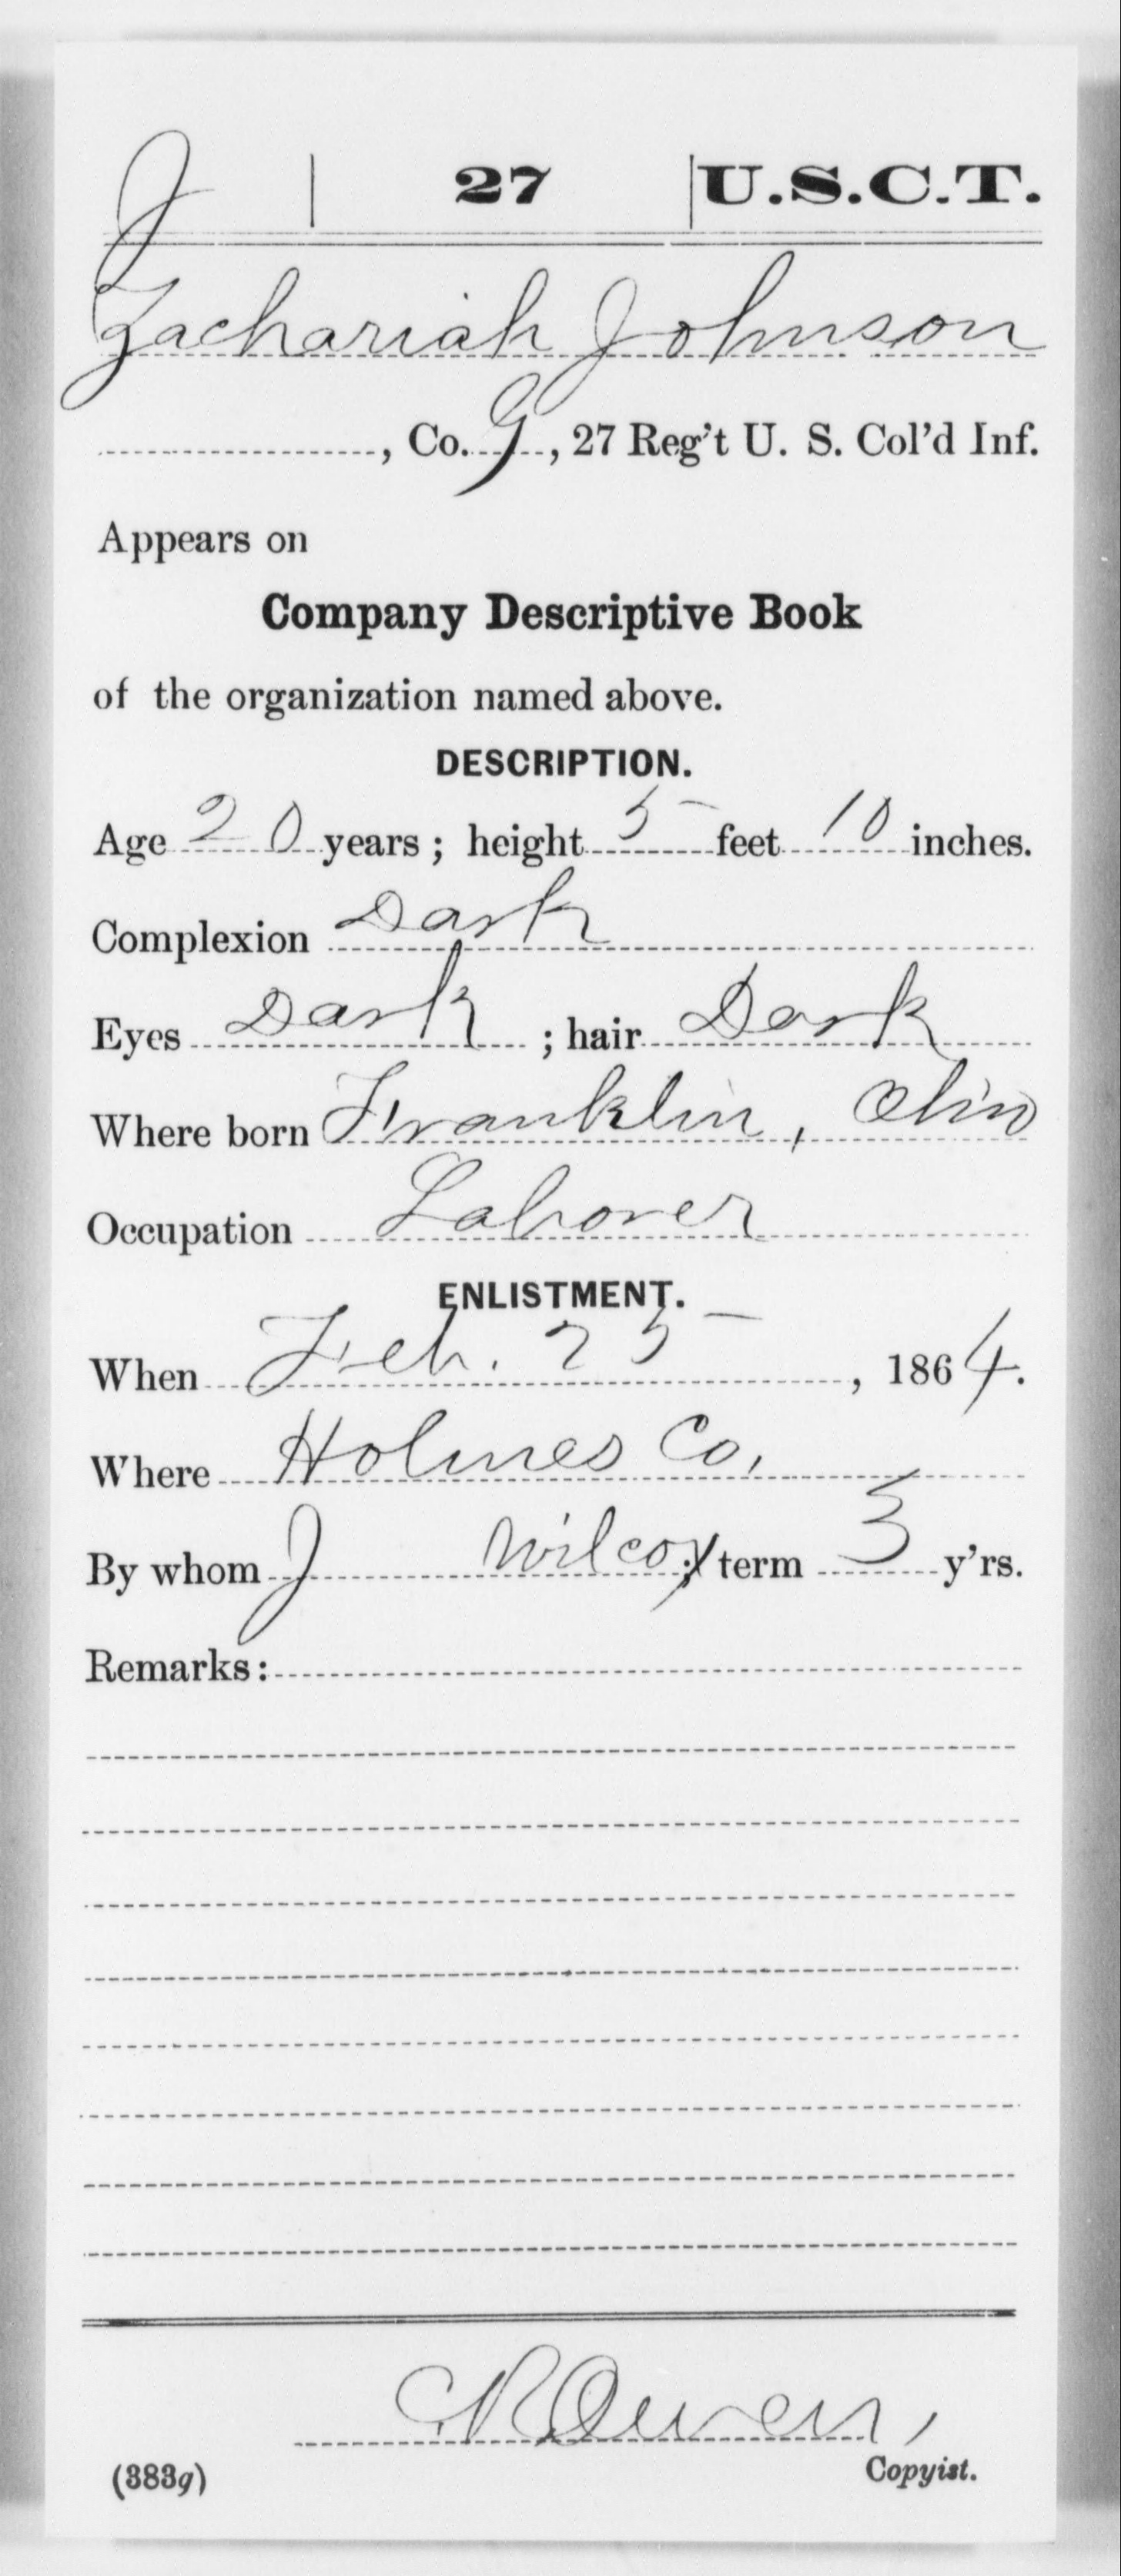 J | 27 | U.S.C.T.
Zachariah Johnson
, Co. G, 27 Reg't U. S. Col'd Inf.
Appears on
Company Descriptive Book
of the organization named above.
DESCRIPTION.
Age 20 years; height 5 feet 10 inches.
Complexion Dark
Eyes Dark ; hair Dark
Where born Franklin, Ohio
Occupation Laborer
ENLISTMENT.
When Feb. 25, 1864.
Where Holmes Co.
By whom J Wilcox; term 3 y'rs.
Remarks:
C R Owen,
(383g) Copyist.